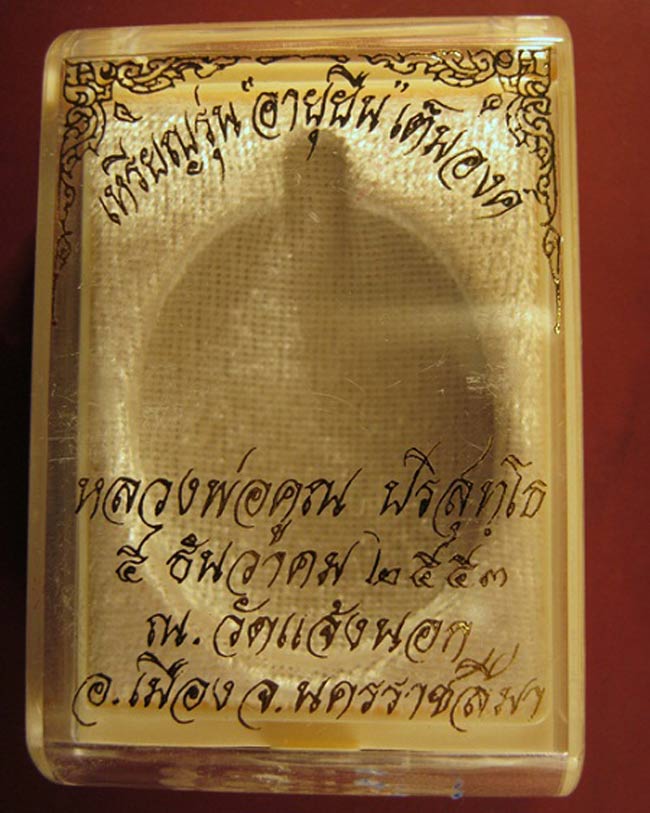 เหรียญรุ่น "อายุยืน" เต็มองค์
หลวงพ่อคูณ ปริสุทฺโธ
๕ ธันวาคม ๒๕๕๓
ณ. วัดแจ้งนอก
อ.เมือง จ.นครราชสีมา